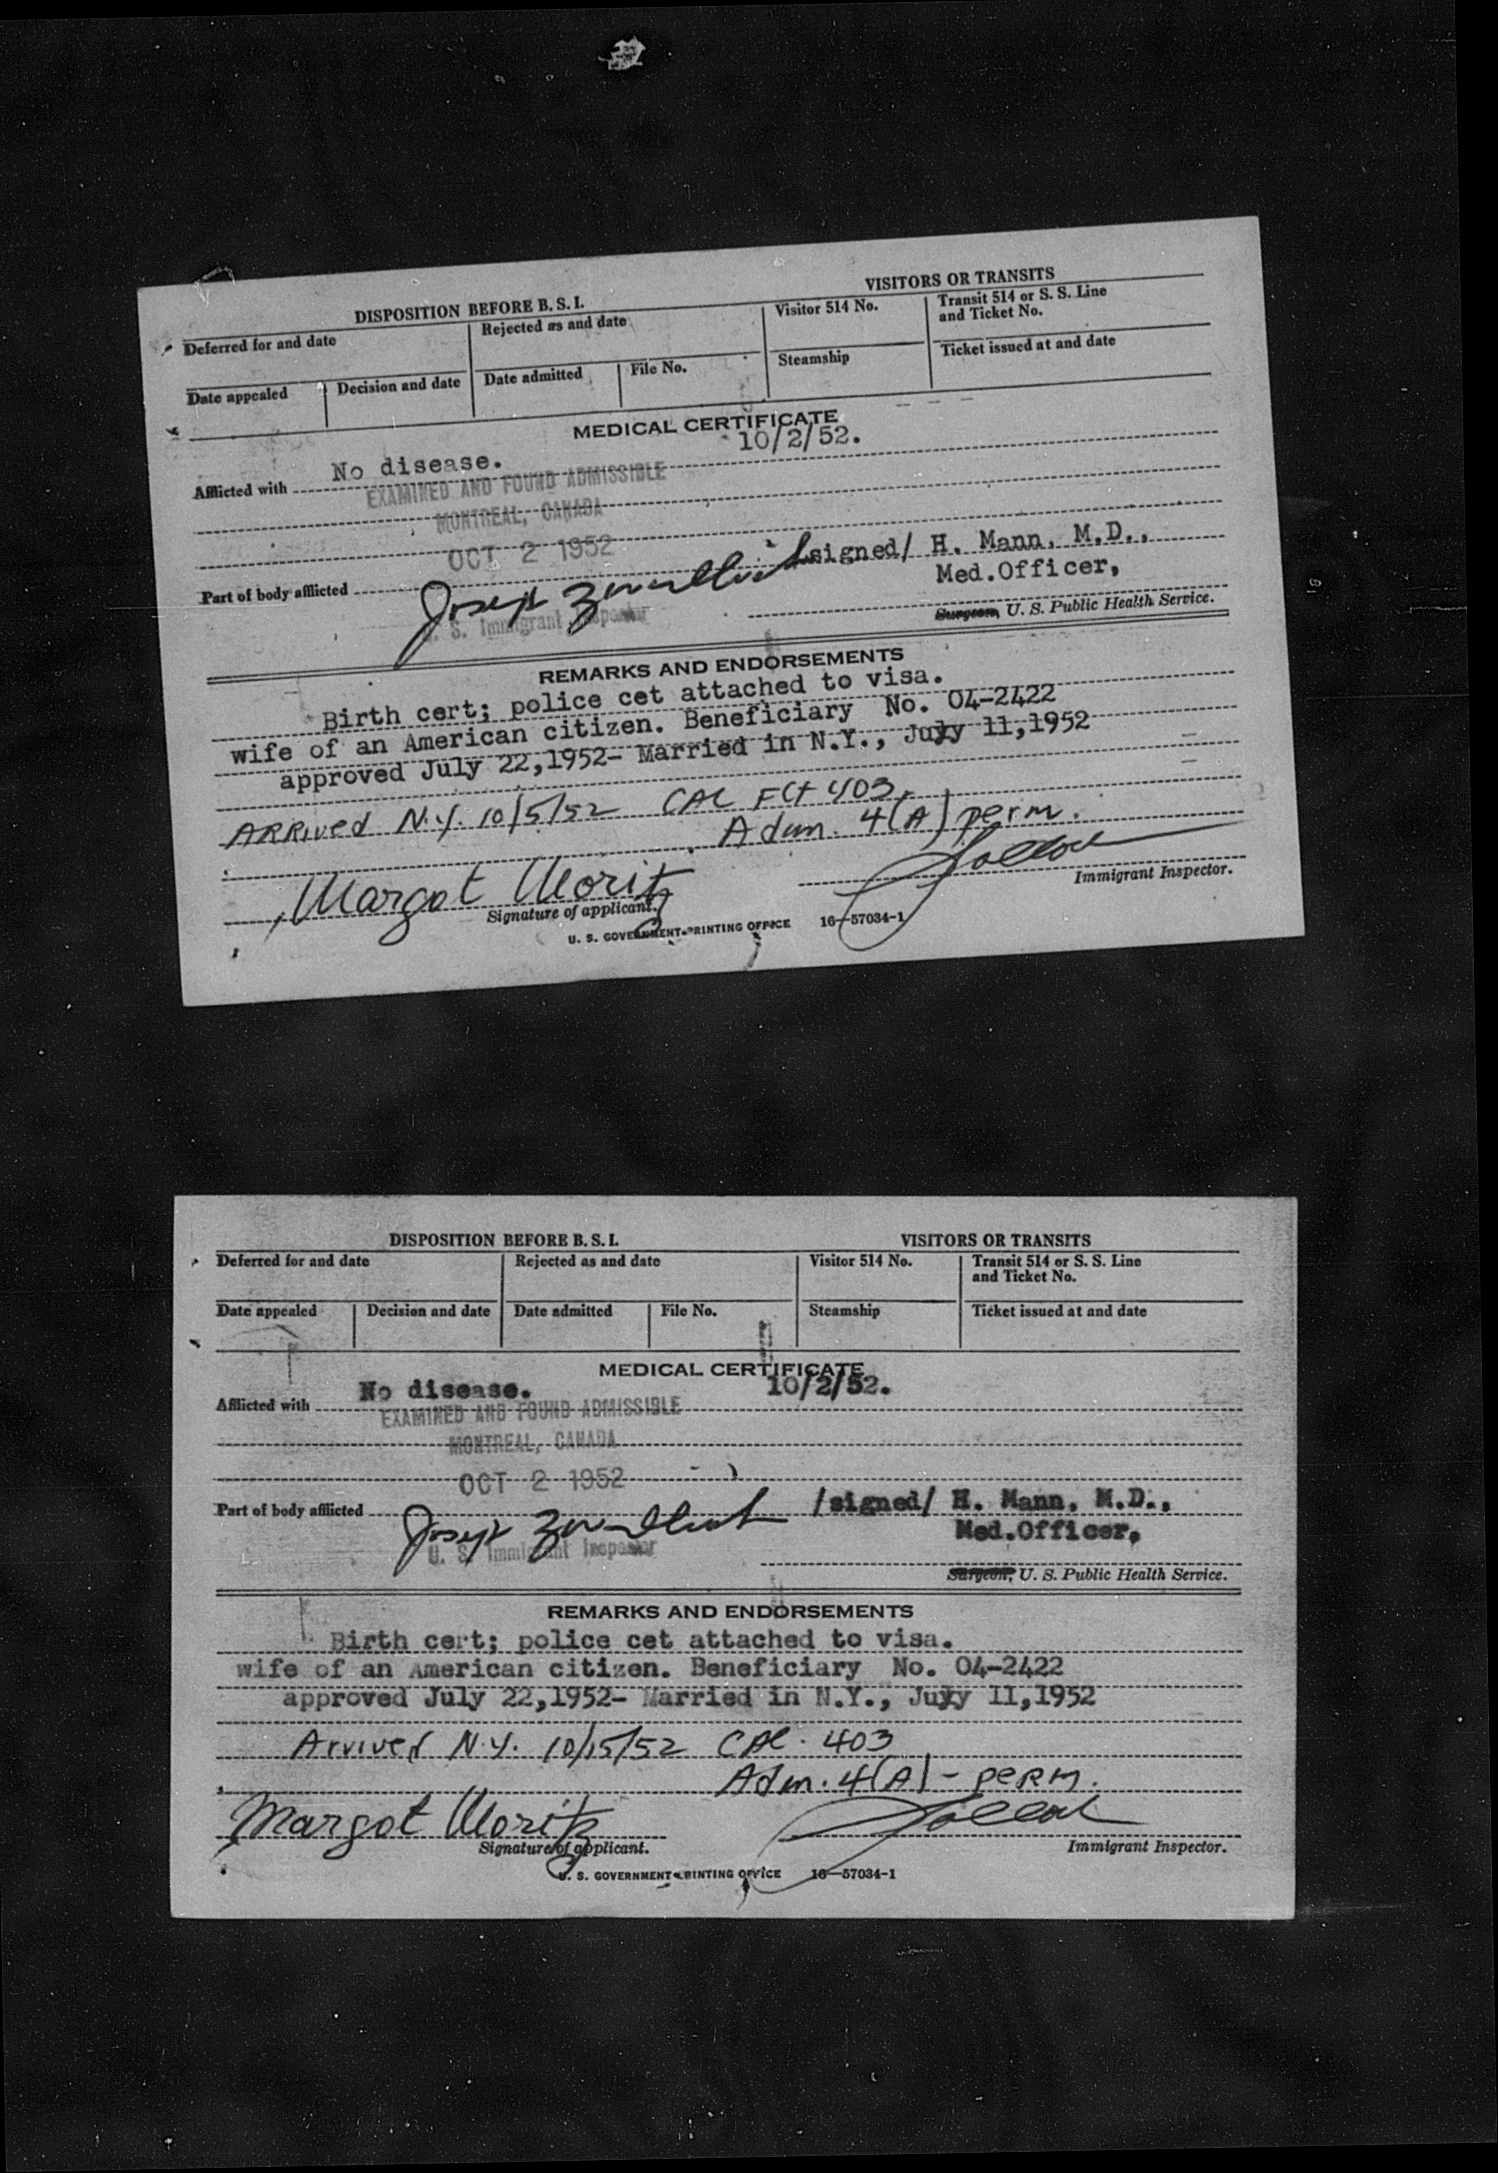 DISPOSITION BEFORE B. S. I.
VISITORS OR TRANSITS
Deferred for and date
Rejected as and date
Visitor 514 No.
Transit 514 or S. S. Line
and Ticket No.
Date appealed
Decision and date
Date admitted
File No.
Steamship
Ticket issued at and date
MEDICAL CERTIFICATE
No disease. 10/2/52.
Afflicted with
EXAMINED AND FOUND ADMISSIBLE
MONTREAL, CANADA
OCT 2 1952
signed/ H. Mann, M.D.,
Part of body afflicted
Joseph
Med.Officer,
U. S. Immigrant Inspector
Surgeon, U. S. Public Health Service.
REMARKS AND ENDORSEMENTS
Birth cert; police cet attached to visa.
wife of an American citizen. Beneficiary No. 04-2422
approved July 22,1952- Married in N.Y., Juyy 11,1952
ARRived N.Y. 10/5/52 CAL Flt 403
Adm. 4(A) perm.
Margot Moritz
Signature of applicant.
Immigrant Inspector.
U. S. GOVERNMENT PRINTING OFFICE 16—57034-1
DISPOSITION BEFORE B. S. I.
VISITORS OR TRANSITS
Deferred for and date
Rejected as and date
Visitor 514 No.
Transit 514 or S. S. Line
and Ticket No.
Date appealed
Decision and date
Date admitted
File No.
Steamship
Ticket issued at and date
MEDICAL CERTIFICATE
No disease. 10/2/52.
Afflicted with
EXAMINED AND FOUND ADMISSIBLE
MONTREAL, CANADA
OCT 2 1952
Part of body afflicted
Joseph
/signed/ H. Mann, M.D.,
Med.Officer,
U. S. Immigrant Inspector
Surgeon, U. S. Public Health Service.
REMARKS AND ENDORSEMENTS
Birth cert; police cet attached to visa.
wife of an American citizen. Beneficiary No. 04-2422
approved July 22,1952- Married in N.Y., Juyy 11,1952
Arrived N.Y. 10/15/52 CAL. 403
Adm. 4(A) - perm.
Margot Moritz
Signature of applicant.
Immigrant Inspector.
U. S. GOVERNMENT PRINTING OFFICE 16—57034-1